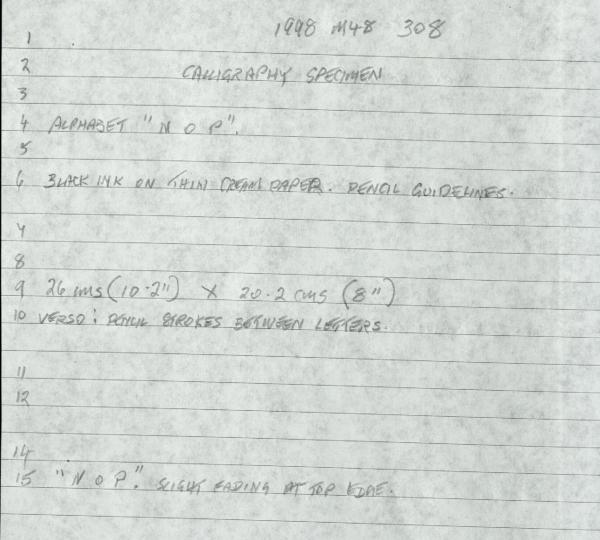 1998 M48 308
1
2 CALLIGRAPHY SPECIMEN
3
4 ALPHABET "N O P".
5
6 BLACK INK ON THIN CREAM PAPER. PENCIL GUIDELINES.
7
8
9 26 cms (10.2") X 20.2 cms (8")
10 VERSO: PENCIL STROKES BETWEEN LETTERS.
11
12
14
15 "N O P." SLIGHT FADING AT TOP EDGE.